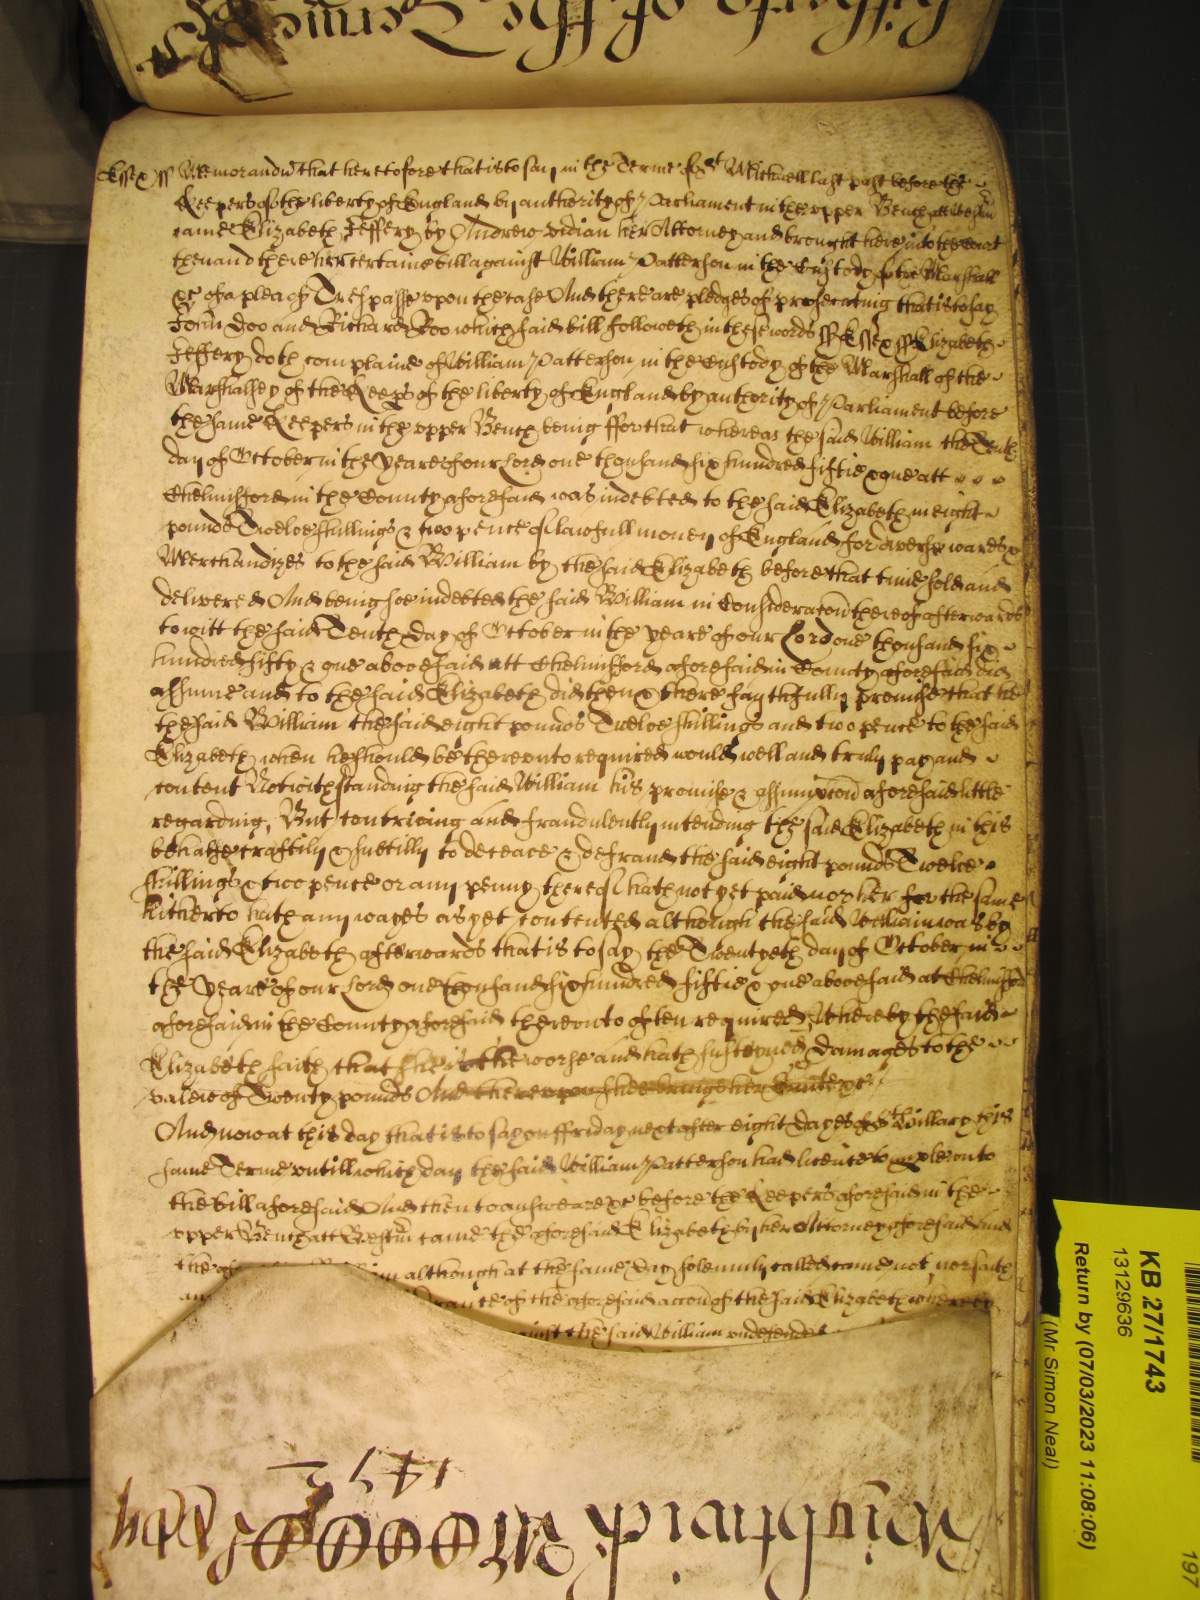 hitherto of the Terme of St
Essex ss Memorandū that heretofore that is to say in the Terme of St Michaell last past before the
Keepers of the liberty of England by authority of Parliament in the upper Bench att Westm̄
came Elizabeth Jeffery by Andrew Vidian her Attorney and brought here into the Court
then and there her certaine bill against William Patterson in the Custody of the Marshall
&c of a plea of Trespasse upon the case And there are pledges of prosecuting that is to say
John Doo and Richard Roo which said bill followeth in these words ss Essex ss Elizabeth
Jeffery doth complaine of William Patterson in the Custody of the Marshall of the
Marshallsey of the Keeps of the liberty of England by authority of Parliament before
the same Keepers in the upper Bench being ffor that whereas the said William the Tenth
day of October in the Yeare of our Lord one thousand six hundred fiftie & one att
Chelmisford in the County aforesaid was indebted to the said Elizabeth in eight
pounds Twelve shillings & two pence of lawfull money of England for diverse wares &
Merchandizes to the said William by the said Elizabeth before that time sold and
delivered And being soe indebted the said William in Consideracōn thereof afterwards
to witt the said Tenth day of October in the yeare of our Lord one thousand six
hundred fifty & one abovesaid att Chelmisford aforesaid in County aforesaid did
assume and to the said Elizabeth did then & there faythfully promise that he
the said William the said eight pounds Twelve shillings and two pence to the said
Elizabeth when he should be thereunto required would well and truly pay and
content Notwithstanding the said William his promise & assumpcōn aforesaid little
regarding, But contriving and fraudulently intending the said Elizabeth in this
behalfe craftily & subtilly to deceave & defraud the said eight pounds Twelve
shillings & two pence or any penny thereof hath not yet paid nor her for the same
hitherto hath any wayes as yet contented although the said William was by
the said Elizabeth afterwards that is to say the Twentyeth day of October in
the Yeare of our Lord one thousand six hundred fiftie & one abovesaid at Chelmisford
aforesaid in the County aforesaid thereunto often required, Whereby the said
Elizabeth saith that shee is the worse and hath susteyned Damages to the
valew of Twenty pounds And thereupon shee brings her suite &c
And now at this day that is to say on ffriday next after eight dayes of St Hillary this
same Terme untill which day the said William Patterson had licence to imple unto
the bill aforesaid And then to answeare &c before the Keepers aforesaid in the
upper Bench att Westm̄ came the aforesaid Elizabeth by her Attorney aforesaid And
the af although at the same day solemnly called came not nor saith
an of the aforesaid accōn of the said Elizabeth whereby
against the said William undefended
1472
KB 27/1743
13129636
Return by (07/03/2023 11:08:06)
(Mr Simon Neal)
197